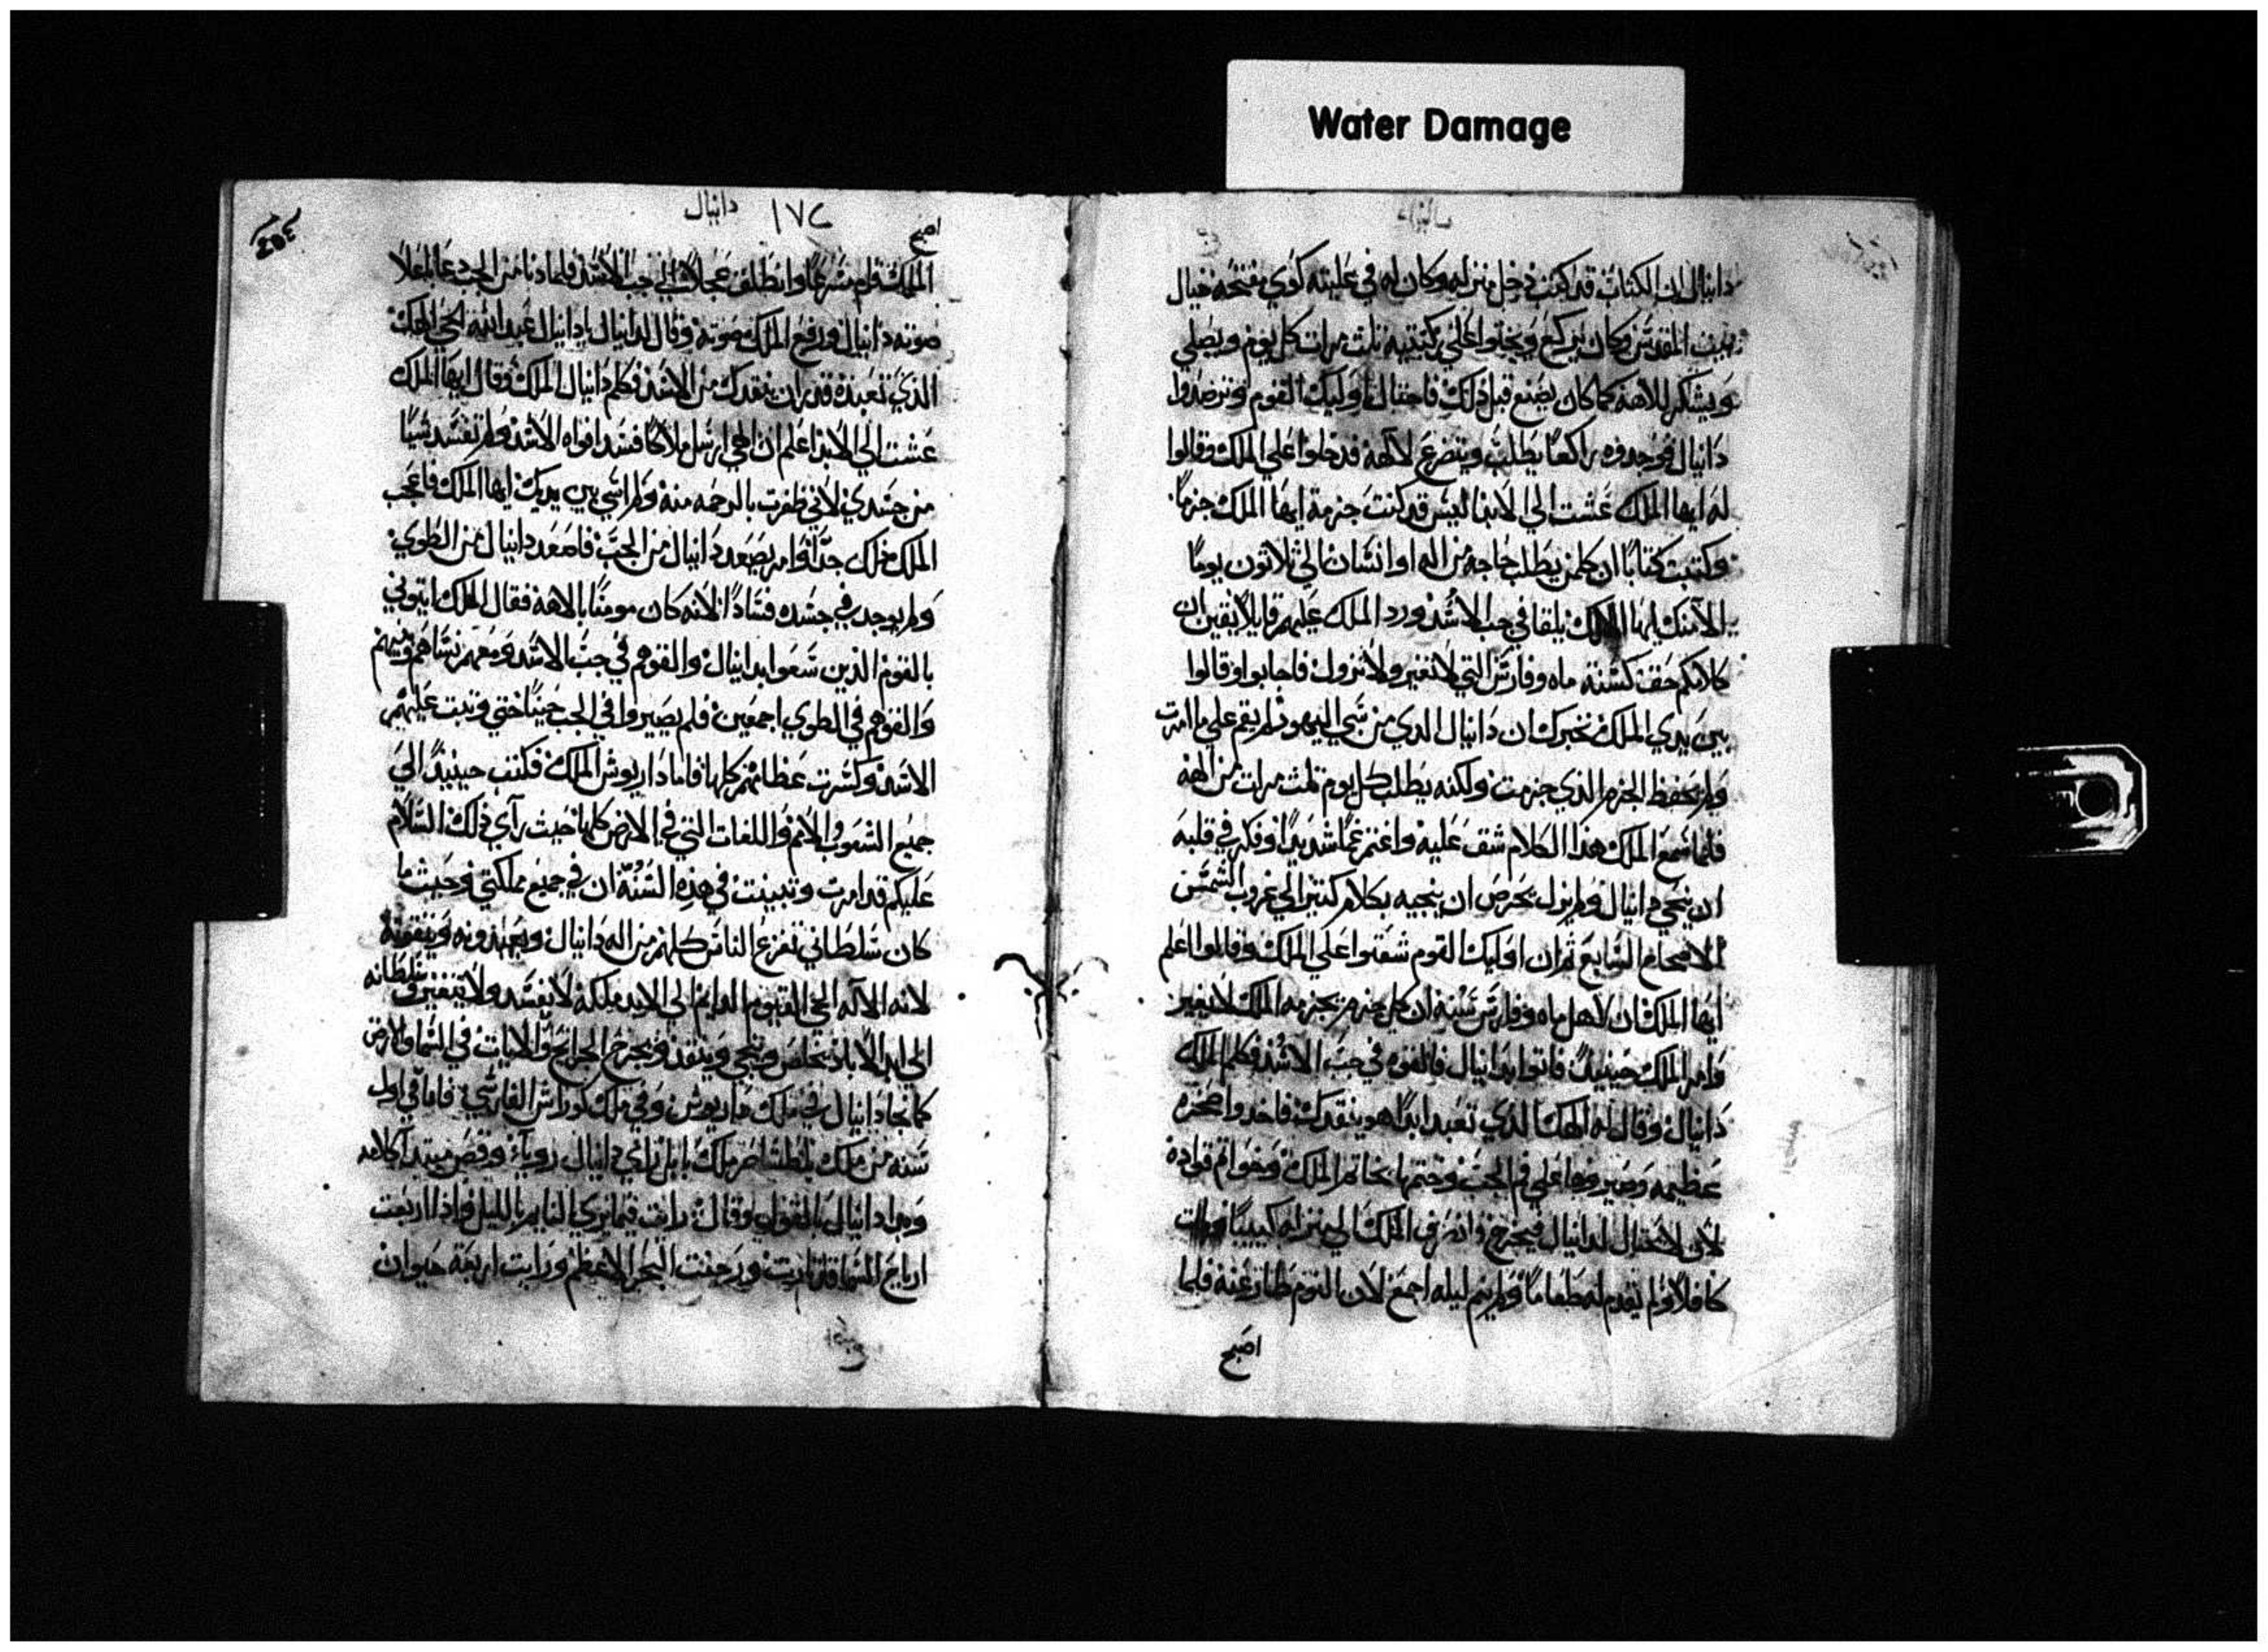 Water Damage
دانيال ان الكتاب قد كتب دخل منزله وكان له في عليته كوي مفتحه حيال
بيت المقدس وكان يركع ويجثوا علي ركبتيه ثلث مرات كل يوم ويصلي
ويشكر للاهه كما كان يصنع قبل ذلك فاحتال اوليك القوم وترصدوا
دانيال فوجدوه راكعا يطلب ويتضرع لالاهه فدخلوا علي الملك وقالوا
له ايها الملك عشت الي الابد اليس قد كنت جزمة ايها الملك جزما
وكتبت كتابا ان كلمن يطلب حاجه من اله او انسان الي ثلاثون يوما
الا منك ايها الملك يلقا في جب الاسد ورد الملك عليهم قايلا يقين ان
كلامكم حق كسنة ماه وفارس التي لا تغير ولا تزول فاجابوا وقالوا
بين يدي الملك نخبرك ان دانيال الدي من سبي اليهود لم يقم علي ما امرت
ولم يحفظ الجزم الذي جزمت ولكنه يطلب كل يوم ثلث مرات من الهه
فلما سمع الملك هذا الكلام شق عليه واغتم غما شديدا وفكر في قلبه
ان ينجي دانيال ولم يزل يحرص ان ينجيه بكلام كثير الي غروب الشمس
الاصحاح السابع ثم ان اوليك القوم شقوا علي الملك وقالوا اعلم
ايها الملك ان لاهل ماه وفارس سنه ان كل جزم يجزمه الملك لا يغير
وامر الملك حينيذ فاتوا بدانيال فالقوه في جب الاسد فكلم الملك
دانيال وقال له الهك الذي تعبد ابدا هو ينقدك فاخدوا صخره
عظيمه وصيروها علي فم الجب وختمها بخاتم الملك وخواتم قواده
لان لا يحتال لدانيال فيخرج وانصرف الملك الي منزله كييبا وبات
كافلا ولم يقدم له طعاما ولم ينم ليله اجمع لان النوم طار عنه فلما
اصبح
دانيال ١٧٢
اصبح
الملك قام مسرعا وانطلق عجلا الي جب الاسد فلما دنا من الجب دعا باعلا
صوته دانيال ورفع الملك صوته وقال لدانيال يا دانيال عبد الله الحي الهك
الذي تعبده قدر ان ينقدك من الاسد فكلم دانيال الملك وقال ايها الملك
عشت الي الابد اعلم ان الهي ارسل ملاكا فسد افواه الاسد ولم تفسد شيا
من جسدي لاني ظفرت بالرحمه منه ولم اسي بين يديك ايها الملك فاعجب
الملك ذلك جدا وامر يصعد دانيال من الجب فاصعد دانيال من الطوي
ولم يوجد في جسده فسادا لانه كان مومنا بالاهه فقال الملك ايتوني
بالقوم الذين سعوا بدانيال والقوهم في جب الاسد ومعهم نساهم وبنيهم
والقوهم في الطوي اجمعين فلم يصيروا في الجب حينا حتي وتبت عليهم
الاسد وكسرت عظامهم كلها فاما داريوش الملك فكتب حينيذ الي
جميع الشعوب والامم واللغات التي في الارض كلها حيث راي ذلك السلام
عليكم قد امرت وتبينت في هذه السنه ان في جميع مملكتي وحيث ما
كان سلطاني تفزع الناس كلهم من اله دانيال ويعبدونه ويتقونه
لانه الاله الحي القيوم الدايم الي الابد ملكه لا يفسد ولا يتغير سلطانه
الي ابد الاباد يخلص وينجي وينقذ ويخرج الجرايح والايات في السما والارض
كما نجا دانيال في ملك داريوش وفي ملك كوراش الفارسي فاما في اول
سنه من ملك بلطشاصر ملك بابل راي دانيال روياء وقص مبتدا كلامه
وبدا دانيال بالقول وقال رايت فيما يري النايم بالليل واذا اربعت
ارياح السما قد ثارت ورجفت البحر الاعظم ورايت اربعة حيوان